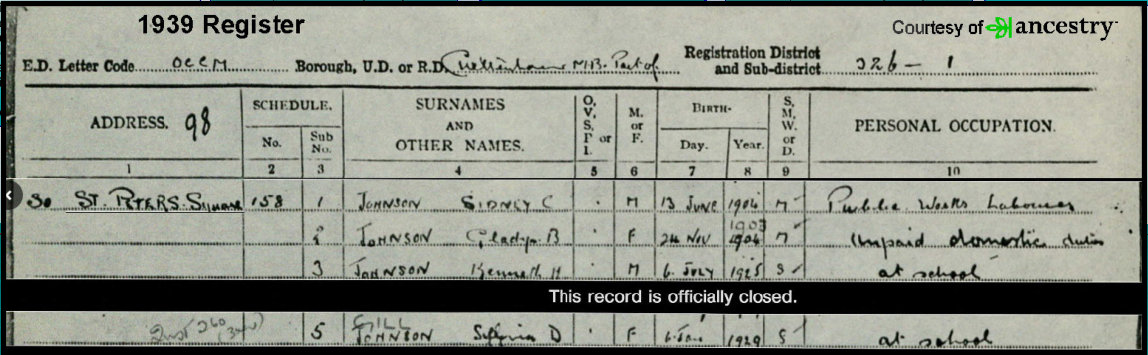 1939 Register
Courtesy of ancestry
E.D. Letter Code OCCM Borough, U.D. or R.D. Cheltenham M.B. Part of Registration District and Sub-district 326 - 1
ADDRESS. 98 SCHEDULE. No. Sub No. SURNAMES AND OTHER NAMES. O, V, S, P or I. M. or F. BIRTH- Day. Year. S, M, W, or D. PERSONAL OCCUPATION.
1 2 3 4 5 6 7 8 9 10
30 ST. PETERS. SQUARE 158 1 JOHNSON SIDNEY C M 13 JUNE 1904 M Public Works Labourer
1903
2 JOHNSON Gladys. B F 24 NOV 1904 M Unpaid domestic duties
3 JOHNSON Kenneth H M 6 JULY 1925 S at school
This record is officially closed.
GILL
5 JOHNSON Sylvia D F 1929 S at school